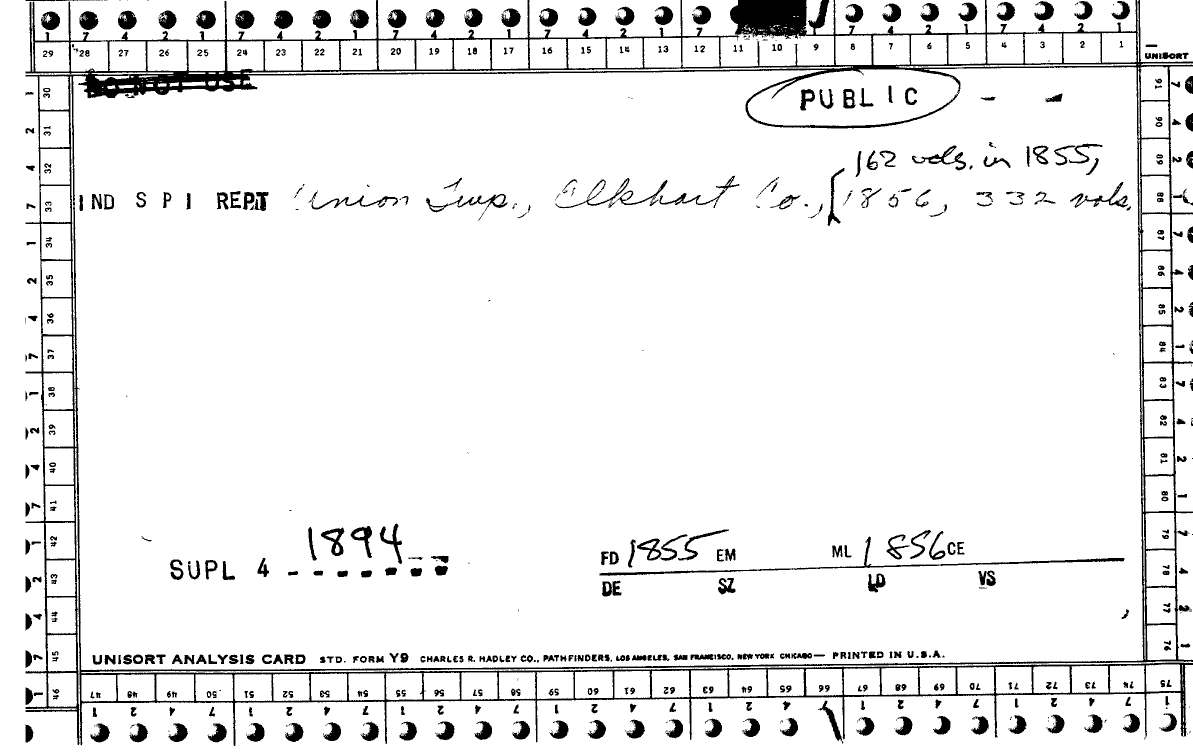 1 7 4 2 1 7 4 2 1 7 4 2 1 7 4 2 1 7 7 4 2 1 7 4 2 1
29 28 27 26 25 24 23 22 21 20 19 18 17 16 15 14 13 12 11 10 9 8 7 6 5 4 3 2 1
UNISORT
DO NOT USE
PUBLIC
162 vols. in 1855,
IND S P I REPT Union Twp., Elkhart Co., 1856, 332 vols.
1894
SUPL 4
FD 1855 EM ML 1856 CE
DE SZ LD VS
UNISORT ANALYSIS CARD STD. FORM Y9 CHARLES R. HADLEY CO., PATHFINDERS, LOS ANGELES, SAN FRANCISCO, NEW YORK CHICAGO — PRINTED IN U.S.A.
30 31 32 33 34 35 36 37 38 39 40 41 42 43 44 45 46
1 2 4 7 1 2 4 7 1 2 4 7 1 2 4 7 1
47 48 49 50 51 52 53 54 55 56 57 58 59 60 61 62 63 64 65 66 67 68 69 70 71 72 73 74 75
1 2 4 7 1 2 4 7 1 2 4 7 1 2 4 7 1 2 4 7 1 2 4 7 1 2 4 7 1
76 77 78 79 80 81 82 83 84 85 86 87 88 89 90 91